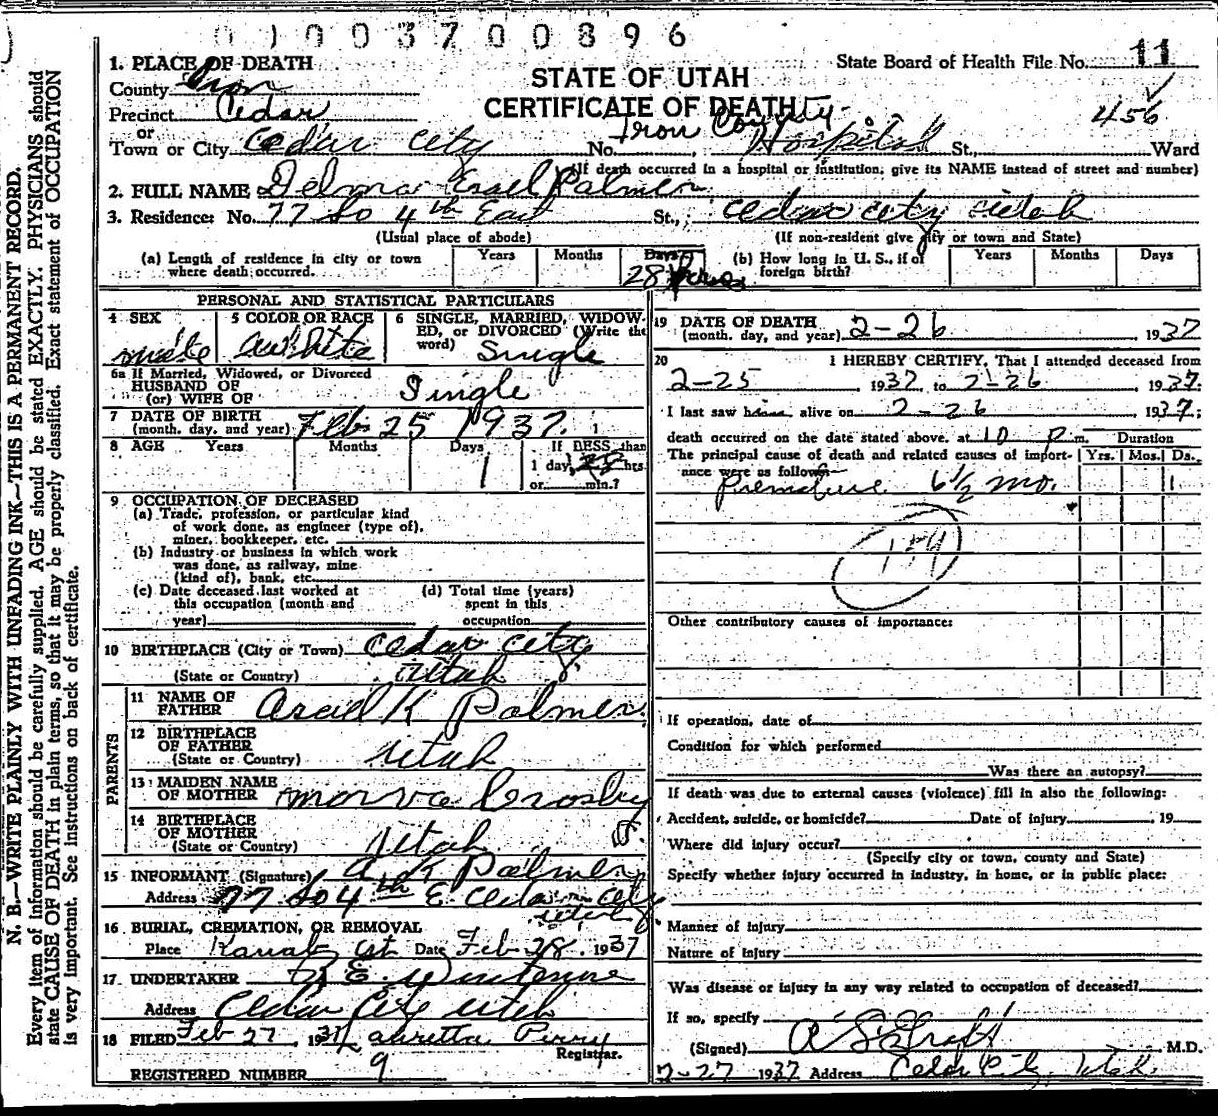 0 1 0 0 3 7 0 0 8 9 6
1. PLACE OF DEATH
STATE OF UTAH
CERTIFICATE OF DEATH
State Board of Health File No. 11
456
County Iron
Precinct Cedar
or
Town or City Cedar City No. Iron County Hospital St., Ward
(If death occurred in a hospital or institution, give its NAME instead of street and number)
2. FULL NAME Palmer
3. Residence: No. 77 So 4th East St., Cedar City Utah
(Usual place of abode) (If non-resident give city or town and State)
(a) Length of residence in city or town where death occurred. Years Months Days 28 hrs
(b) How long in U. S., if of foreign birth? Years Months Days
PERSONAL AND STATISTICAL PARTICULARS
4 SEX male
5 COLOR OR RACE White
6 SINGLE, MARRIED, WIDOWED, or DIVORCED (Write the word) Single
6a If Married, Widowed, or Divorced
HUSBAND OF
(or) WIFE OF Single
7 DATE OF BIRTH
(month, day, and year) Feb 25 1937.
8 AGE Years Months Days 1 If LESS than
1 day, 28 hrs.
or min.?
9 OCCUPATION OF DECEASED
(a) Trade, profession, or particular kind
of work done, as engineer (type of),
miner, bookkeeper, etc.
(b) Industry or business in which work
was done, as railway, mine
(kind of), bank, etc.
(c) Date deceased last worked at
this occupation (month and
year)
(d) Total time (years)
spent in this
occupation
10 BIRTHPLACE (City or Town) Cedar City
(State or Country) Utah
PARENTS
11 NAME OF
FATHER K Palmer
12 BIRTHPLACE
OF FATHER
(State or Country) Utah
13 MAIDEN NAME
OF MOTHER Morva Crosby
14 BIRTHPLACE
OF MOTHER
(State or Country) Utah
15 INFORMANT (Signature) A K Palmer
Address 77 So 4th E Cedar City
Utah
16 BURIAL, CREMATION, OR REMOVAL
Place Kanab Date Feb 28, 1937
17 UNDERTAKER
Address Cedar City Utah
18 FILED Feb 27, 1937 Lauretta Perry
Registrar.
REGISTERED NUMBER 9
19 DATE OF DEATH
(month, day, and year) 2-26 1937
20 I HEREBY CERTIFY, That I attended deceased from
2-25, 1937, to 2-26, 1937.
I last saw him alive on 2-26, 1937;
death occurred on the date stated above, at 10 P m.
The principal cause of death and related causes of importance were as follows: Duration
Yrs. Mos. Ds.
Premature 6 1/2 mo. 1
159
Other contributory causes of importance:
If operation, date of
Condition for which performed
Was there an autopsy?
If death was due to external causes (violence) fill in also the following:
Accident, suicide, or homicide? Date of injury , 19
Where did injury occur?
(Specify city or town, county and State)
Specify whether injury occurred in industry, in home, or in public place:
Manner of injury
Nature of injury
Was disease or injury in any way related to occupation of deceased?
If so, specify
(Signed) M.D.
2-27 1937 Address Cedar City, Utah.
N. B.—WRITE PLAINLY WITH UNFADING INK—THIS IS A PERMANENT RECORD.
Every item of information should be carefully supplied. AGE should be stated EXACTLY. PHYSICIANS should
state CAUSE OF DEATH in plain terms, so that it may be properly classified. Exact statement of OCCUPATION
is very important. See instructions on back of certificate.